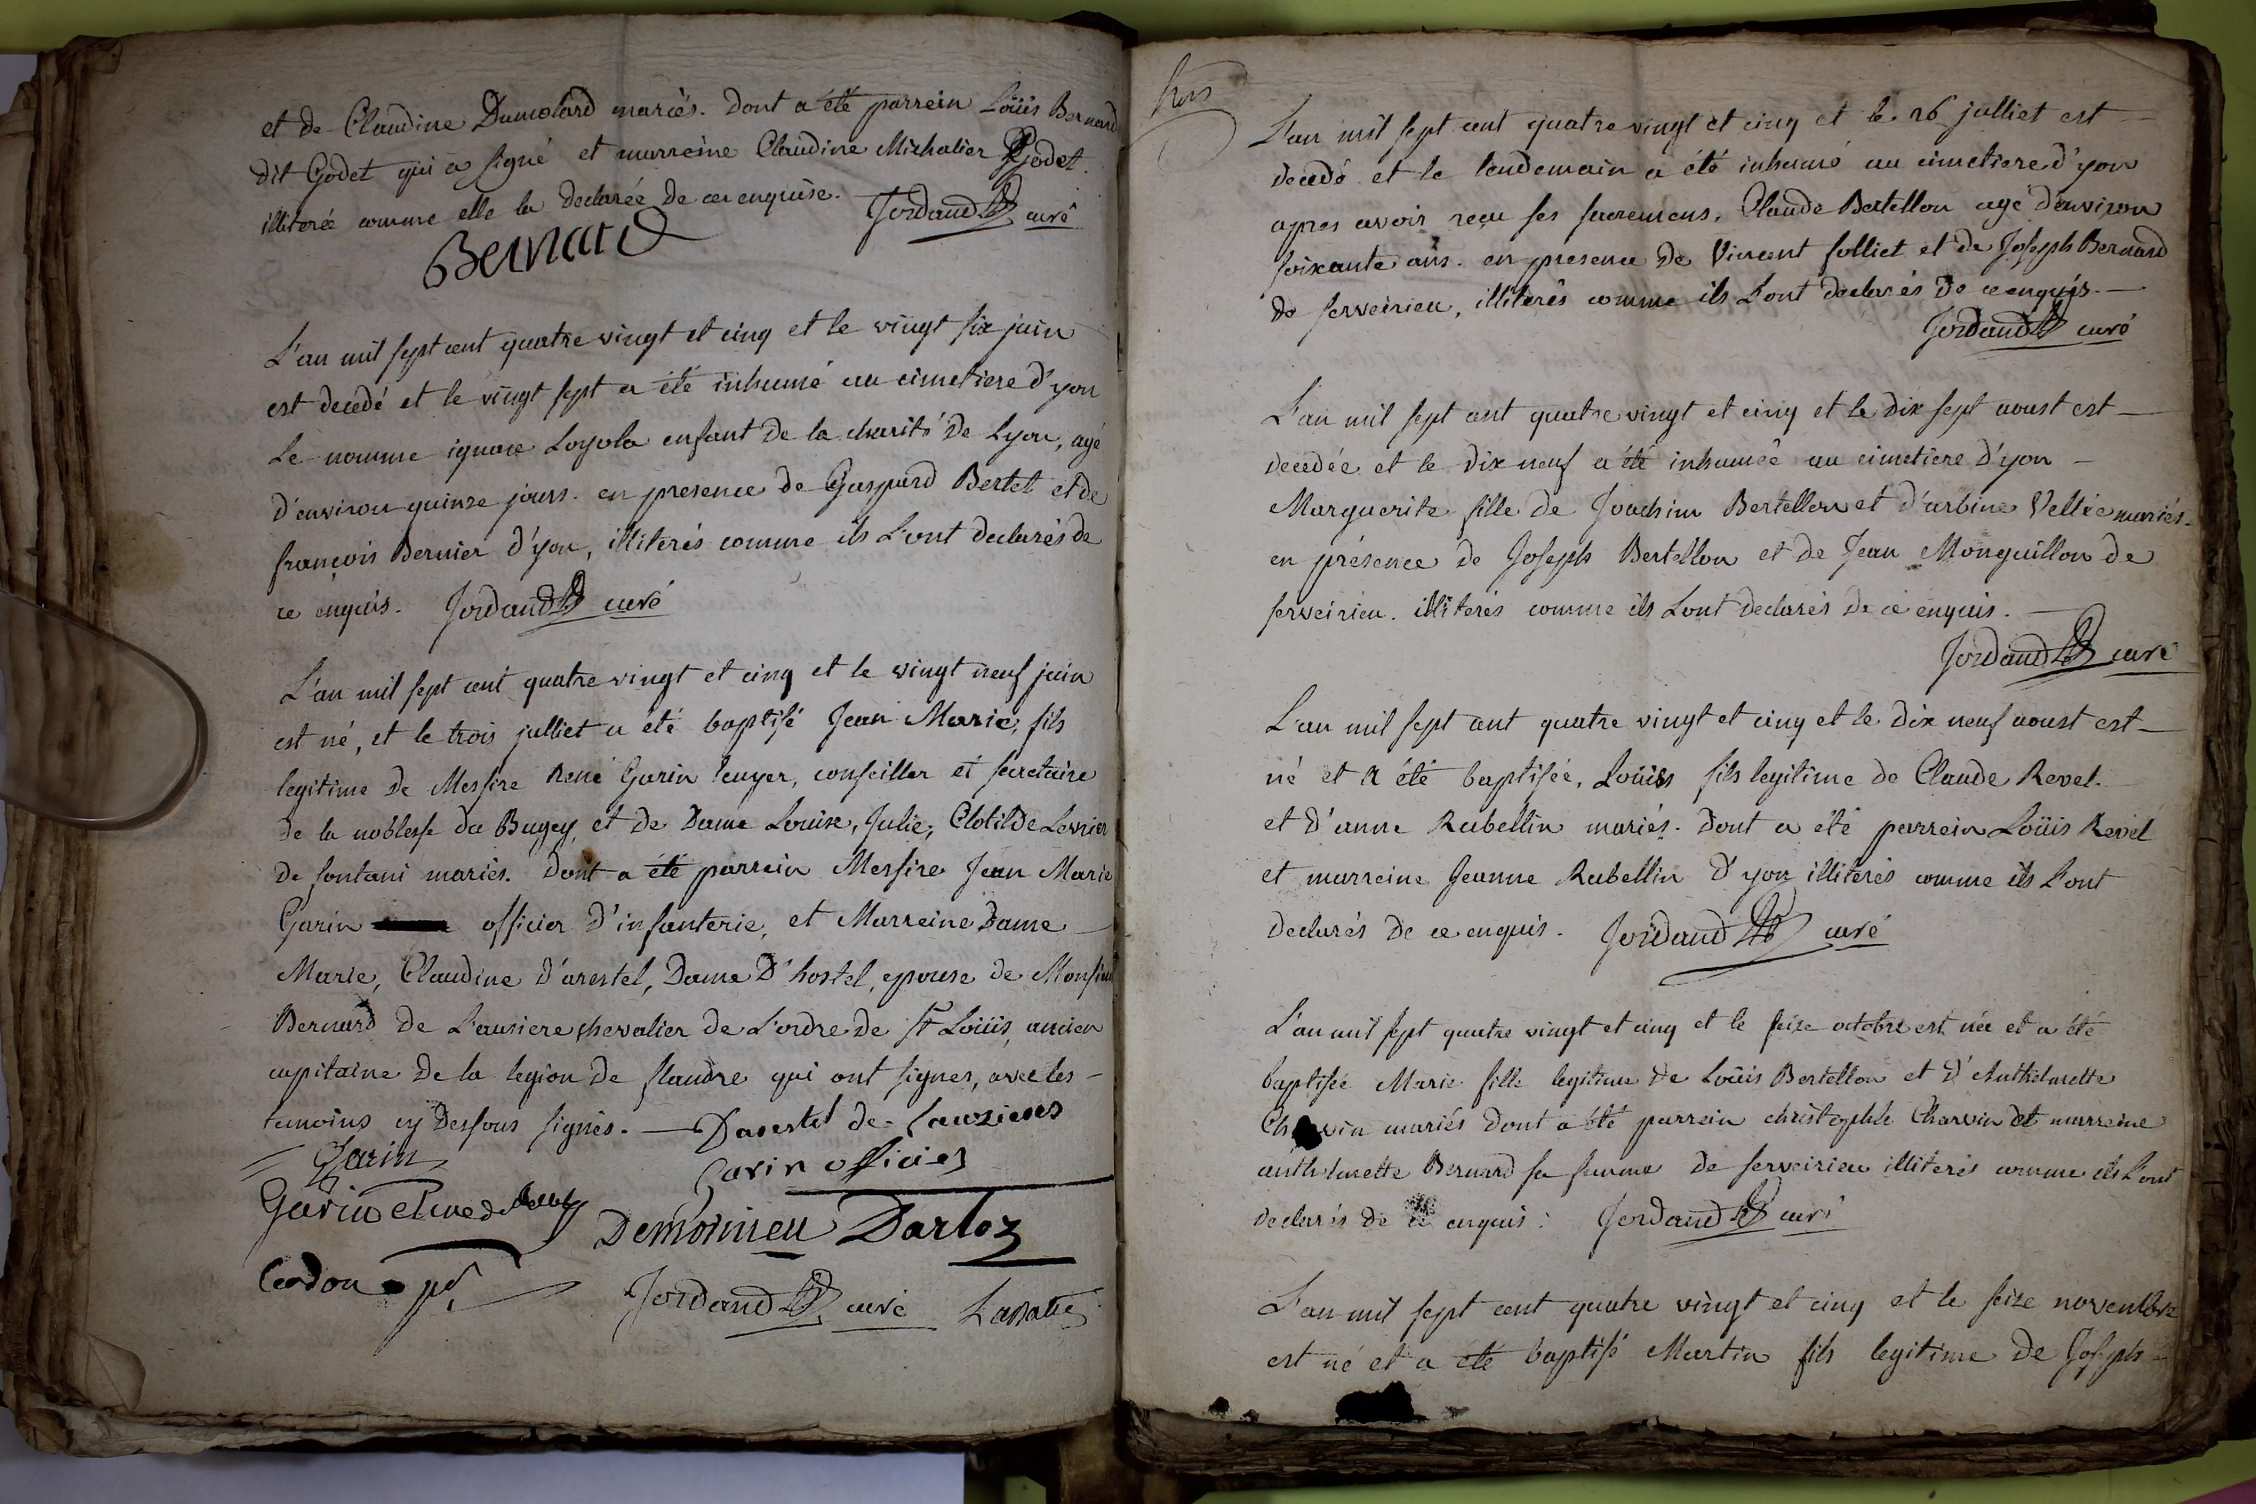 et de Claudine Dumolard mariés. Dont a été parrein Loüis Bernard
dit Godet qui a signé et marreine Claudine Michalier Godet.
illiterée comme elle la declarée de ce enquise. Jordand curé
Bernard
L'an mil sept cent quatre vingt et cinq et le vingt six juin
est decedé et le vingt sept a été inhumé au cimetiere d'yon
Le nomme ignace Loyola enfant de la charité de Lyon, agé
d'environ quinze jours. en presence de Gaspard Bertet et de
françois Bernier d'yon, illiterés comme ils L'ont declarés de
ce enquis. Jordand curé
L'an mil sept cent quatre vingt et cinq et le vingt neuf juin
est né, et le trois julliet a été baptisé Jean Marie, fils
legitime de Messire René Garin Ecuyer, conseiller et secretaire
de la noblesse du Bugey, et de Dame Louise, Julie, Clotilde
de fontani mariés. Dont a été parrein Messire Jean Marie
Garin officier d'infanterie, et Marreine Dame
Marie, Claudine d'arestel, Dame D'hostel, epouse de Monsieur
Bernard de Lausiere chevalier de L'ordre de St Loüis, ancien
capitaine de la legion de flandre qui ont signes, avec les
temoins cy dessous signés. Darestel de Lauzieres
Garin
Garin officier
Garin
Demornieu Dartoz
Cerdon
Jordand curé
trois
L'an mil sept cent quatre vingt et cinq et le 26 julliet est
decedé et le lendemain a été inhumé au cimetiere d'yon
apres avoir reçu ses sacremens, Claude Bertellon agé d'environ
soixante ans. en presence de Vincent folliet et de Joseph Bernard
de serveirieu, illiterés comme ils L'ont declarés de ce enquis.
Jordand curé
L'an mil sept cent quatre vingt et cinq et le dix sept aoust est
decedée et le dix neuf a été inhumée au cimetiere d'yon
Marguerite fille de Joachim Bertellon et d'urbine Vellée mariés.
en présence de Joseph Bertellon et de Jean Monguillon de
serveirieu. illiterés comme ils L'ont declarés de ce enquis.
Jordand curé
L'an mil sept cent quatre vingt et cinq et le dix neuf aoust est
né et a été baptisée, Loüis fils legitime de Claude Revel.
et d'anne Rubellin mariés. Dont a été parrein Loüis Revel
et marreine Jeanne Rubellin d'yon illiterés comme ils L'ont
declarés de ce enquis. Jordand curé
L'an mil sept quatre vingt et cinq et le seize octobre est née et a été
baptisée Marie fille legitime de Loüis Bertellon et d'Anthelmette
Charvin mariés dont a été parrein christophle Charvin et marreine
anthelmette Bernard sa femme de serveirieu illiterés comme ils L'ont
declarés de ce enquis : Jordand curé
L'an mil sept cent quatre vingt et cinq et le seize novembre
est né et a été baptisé Martin fils legitime de Joseph